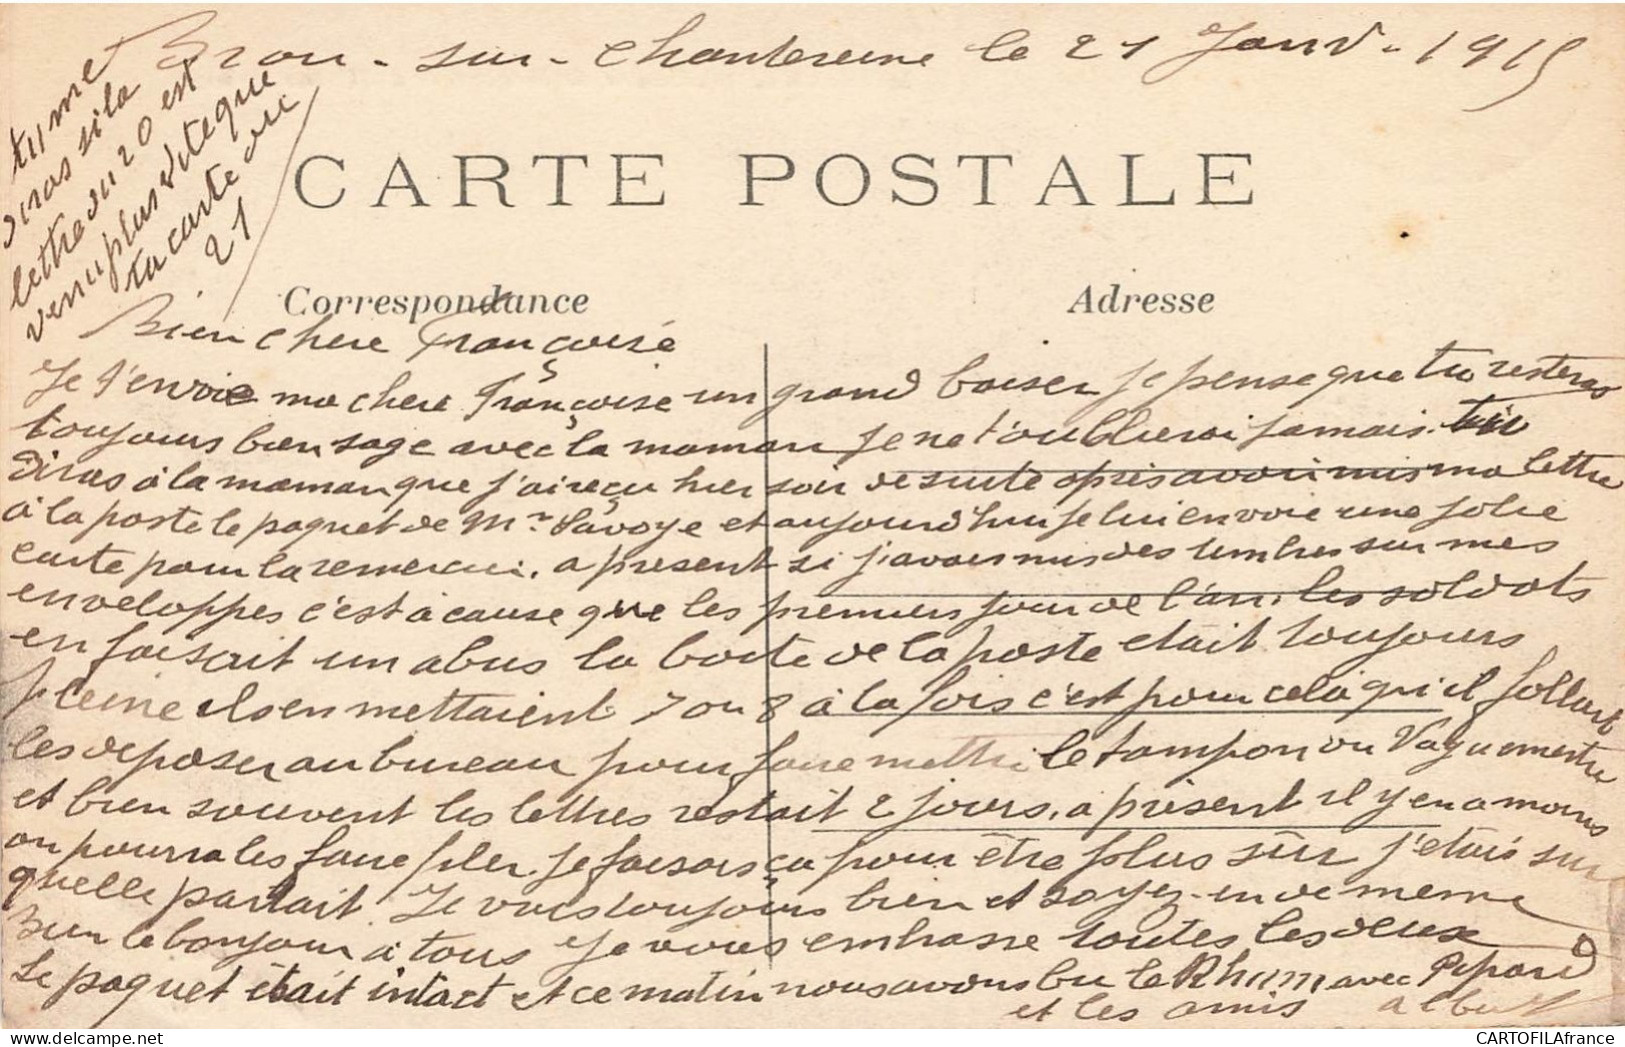 Brou - sur - Chantereine le 21 Janv - 1915
tu me
diras si la
lettre du 20 est
venu plus vite que
ta carte du
21
CARTE POSTALE
Correspondance
Adresse
Bien chere Françoise
Je t'envoie ma chere Françoise un grand baiser je pense que tu resteras
toujours bien sage avec la maman Je ne t'oublierai jamais. tu
diras à la maman que j'ai reçu hier soir de suite apris avoir mis ma lettre
à la poste le paquet de Mr Savoye et aujourd'hui je lui envoie une jolie
carte pour la remercier. a present si j'avais mis des timbres sur mes
enveloppes c'est à cause que les premiers jour de l'an. les soldats
en faisait un abus la boite de la poste etait toujours
pleine ils en mettaient 7 ou 8 à la fois c'est pour cela qu'il fallait
les deposer au bureau pour faire mettre le tampon du Vaguemestre
et bien souvent les lettres restait 2 jours. a présent il y en a moins
on pourra les faire filer. je faisais ça pour être plus sûr j'étais sur
quelle partait. Je vais toujours bien et soyez-en de meme
Bien le bonjour à tous Je vous embrasse toutes les deux
Le paquet était intact et ce matin nous avons bu le Rhum avec Pepard
et les amis albert
CARTOFILAfrance